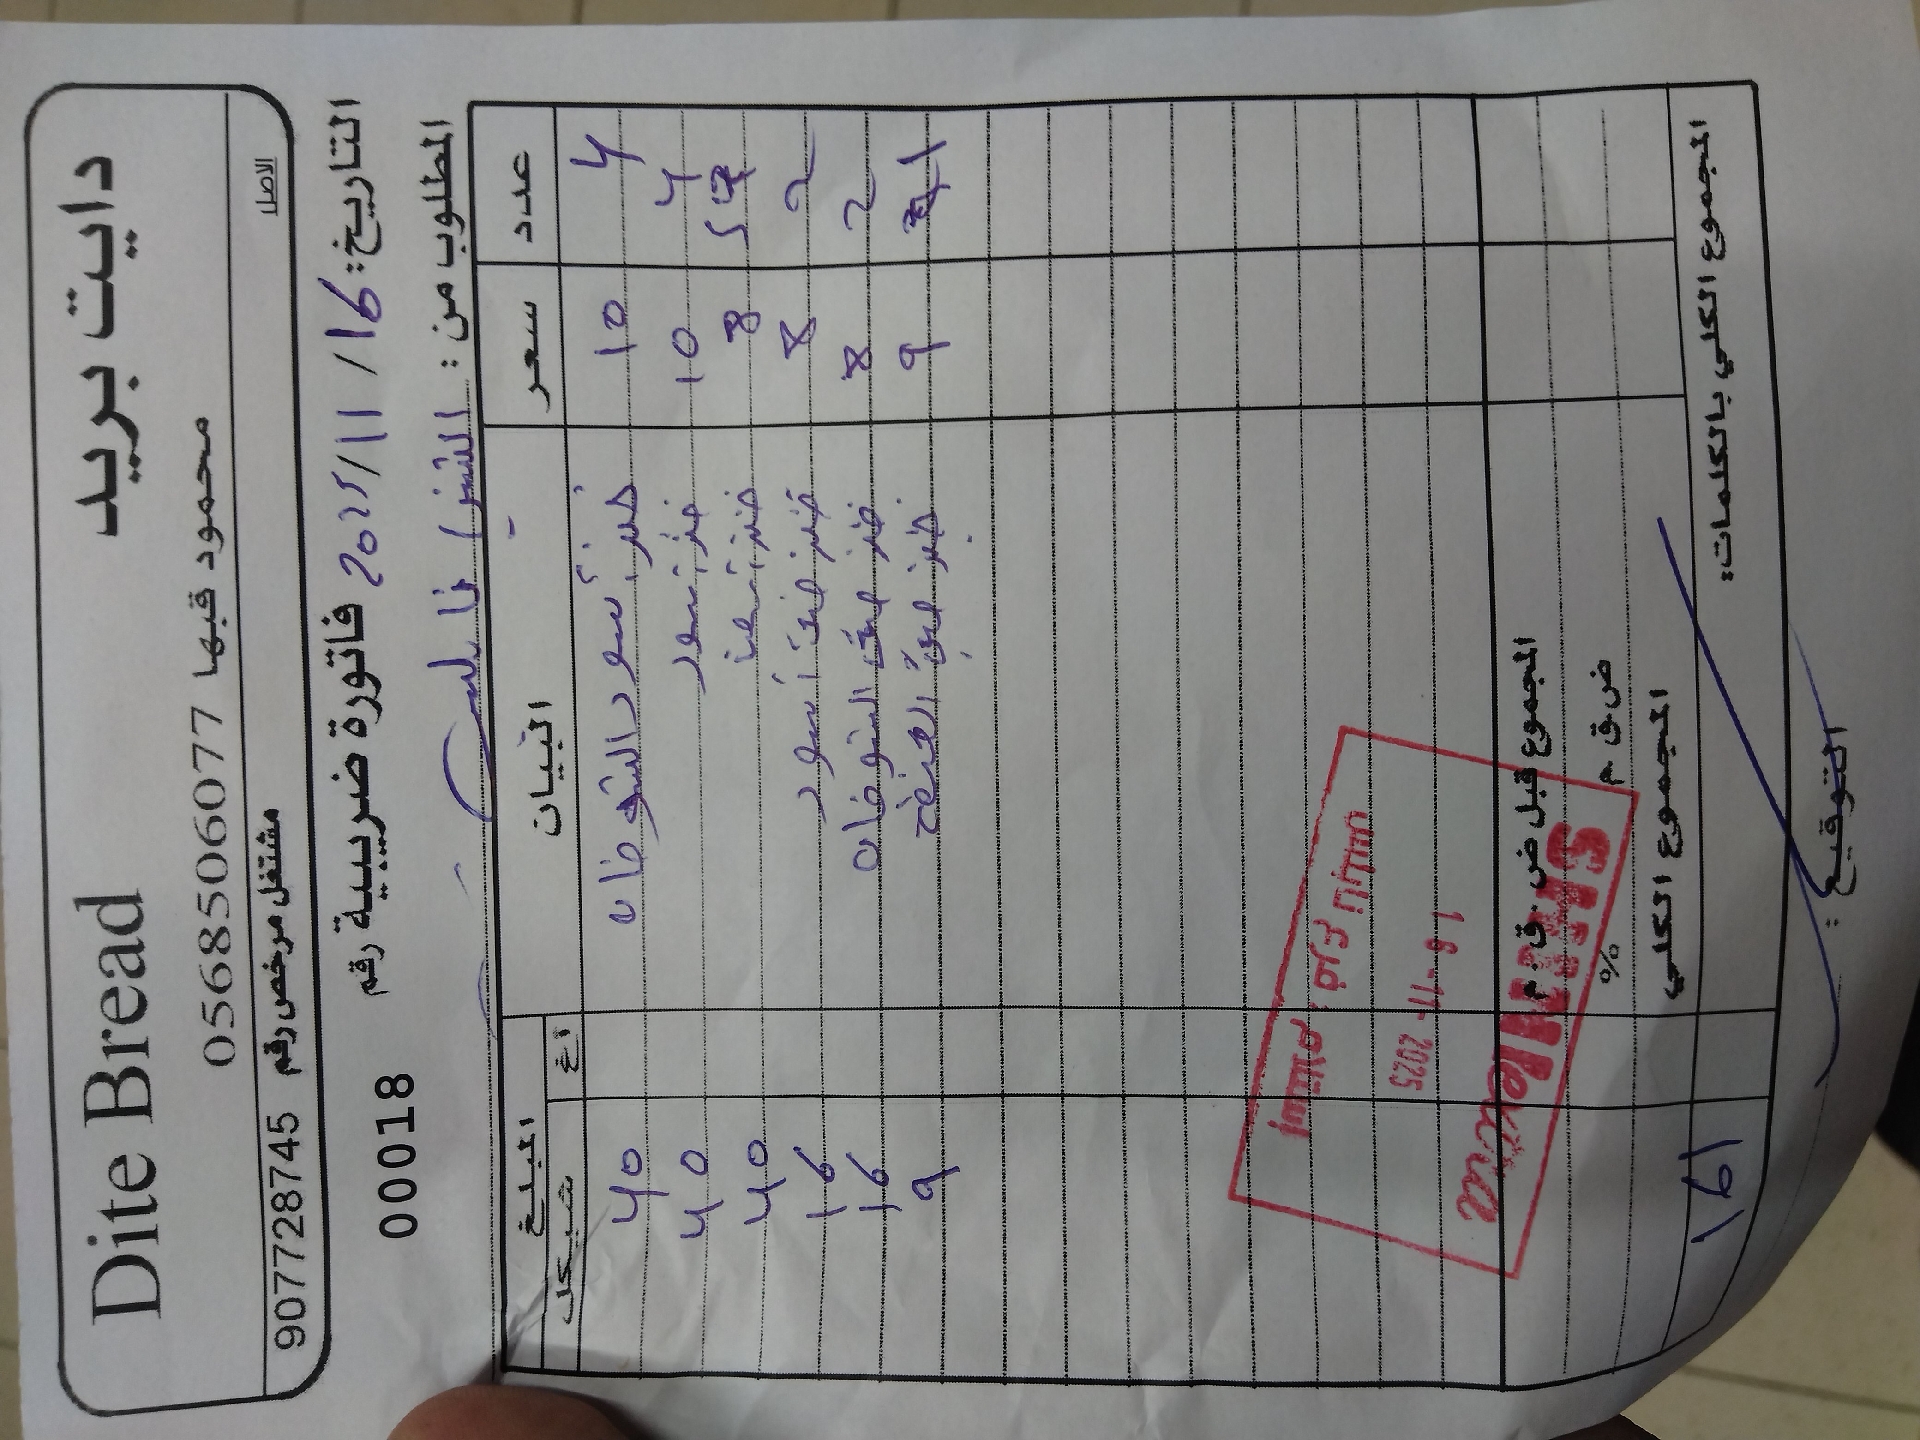 Dite Bread دايت بريد
محمود قبها 0568506077
مشتغل مرخص رقم 907728745 الاصل
التاريخ: 16 / 11 / 2025 فاتورة ضريبية رقم 00018
المطلوب من : الشني نابلس
عدد سعر البيان المبلغ
شيكل اغ
4 10 خبز أسود الشوفان 40
4 10 خبز أسمر 40
5 8 خبز نخالة 40
2 8 خبز صغير أسود 16
2 8 خبز صغير الشوفان 16
1 9 خبز القمح 9
استلام
16 -11- 2025
المجموع قبل ض.ق.م
ض.ق.م %
المجموع الكلي 161
المجموع الكلي بالكلمات:
التوقيع :